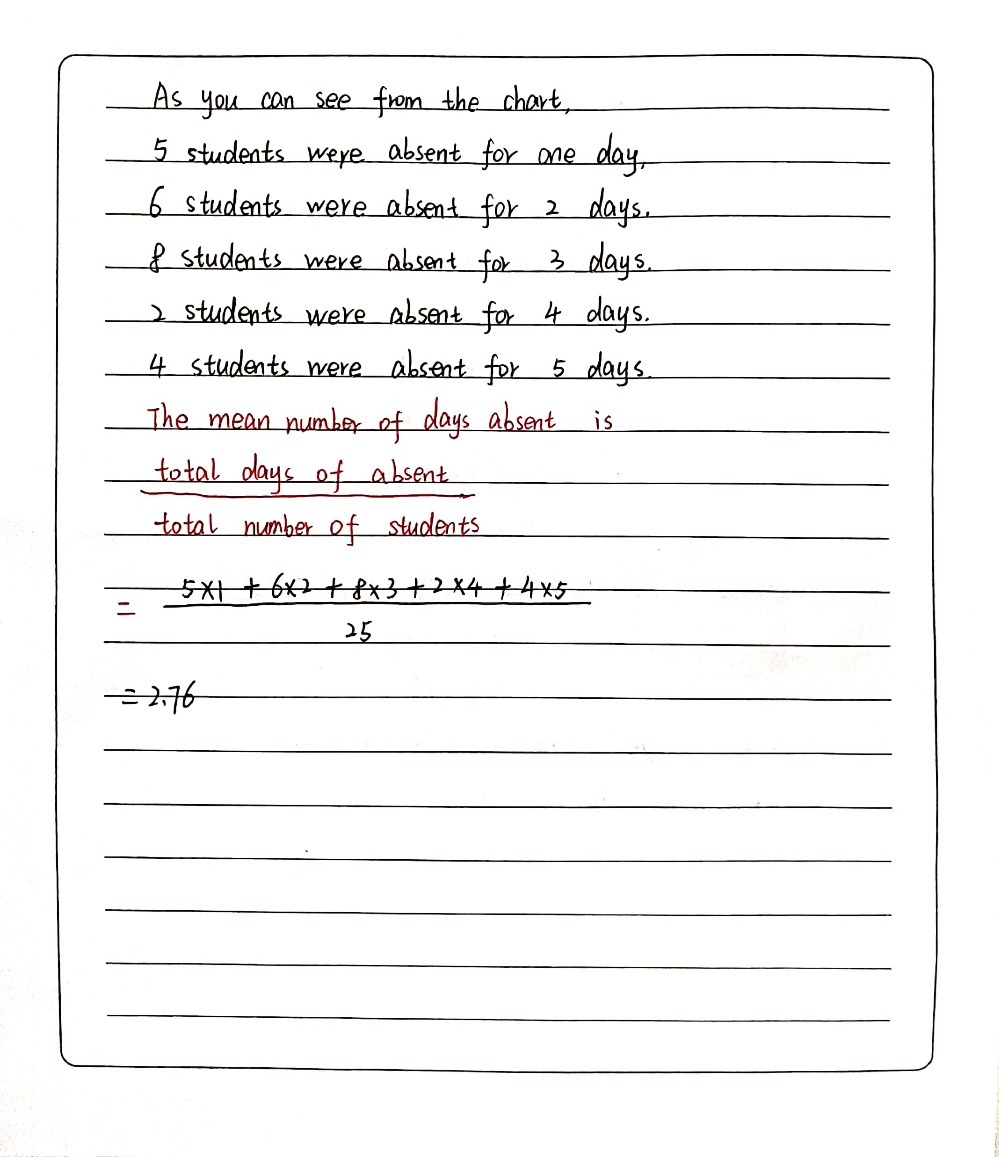 As you can see from the chart,
5 students were absent for one day,
6 students were absent for 2 days.
8 students were absent for 3 days.
2 students were absent for 4 days.
4 students were absent for 5 days.
The mean number of days absent is
total days of absent
total number of students
5×1 + 6×2 + 8×3 + 2×4 + 4×5
=
25
= 2.76